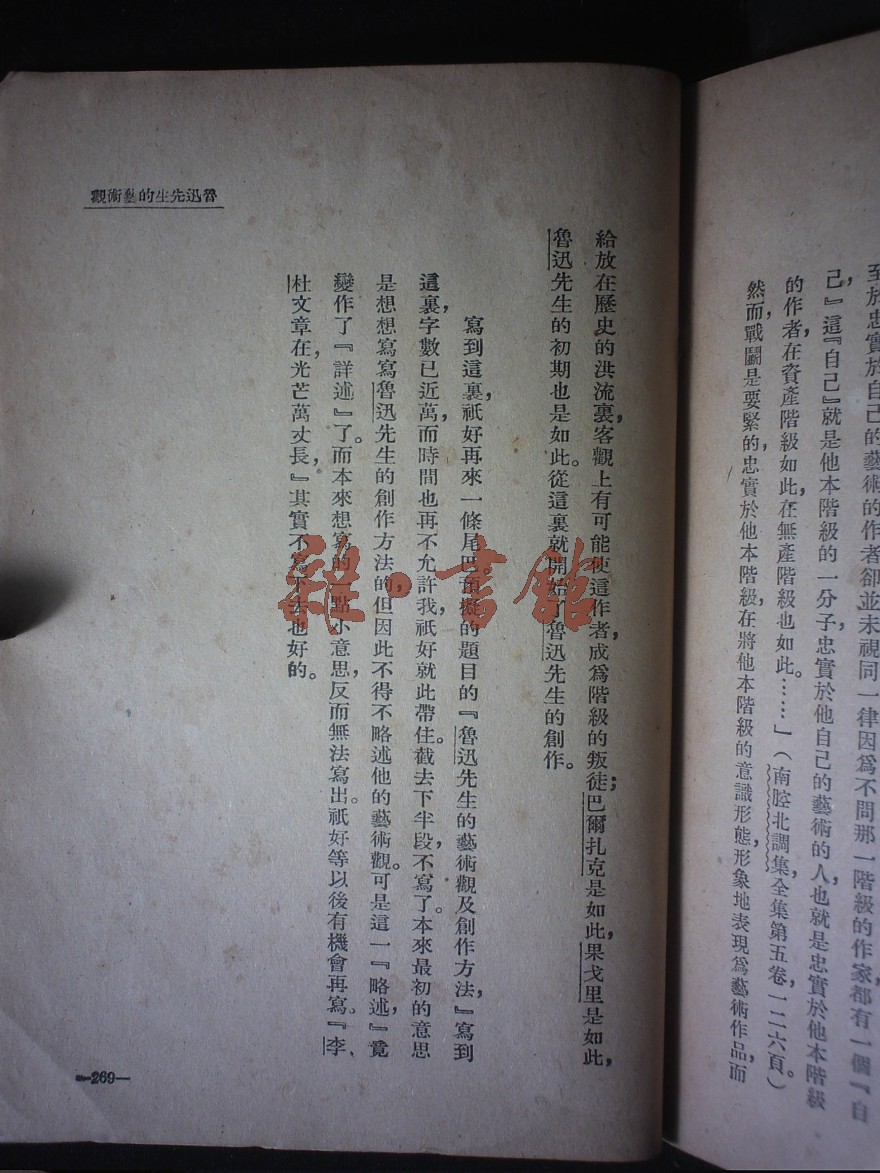 至於忠實於自己的藝術的作者卻並未視同一律因爲不問那一階級的作家都有一個『自
己』，這『自己』就是他本階級的一分子，忠實於他自己的藝術的人，也就是忠實於他本階級
的作者，在資產階級如此，在無產階級也如此。……」（南腔北調集，全集第五卷，一二六頁。）
然而，戰鬭是要緊的，忠實於他本階級，在將他本階級的意識形態形象地表現爲藝術作品，而
給放在歷史的洪流裏，客觀上有可能使這作者，成爲階級的叛徒；巴爾扎克是如此，果戈里是如此，
魯迅先生的初期也是如此。從這裏就開始了魯迅先生的創作。
寫到這裏，祇好再來一條尾巴。預擬的題目的『魯迅先生的藝術觀及創作方法』，寫到
這裏，字數已近萬，而時間也再不允許我，祇好就此帶住。截去下半段，不寫了。本來最初的意思
是想想寫寫魯迅先生的創作方法的，但因此不得不略述他的藝術觀。可是這一『略述』，竟
變作了『詳述』了。而本來想寫的一點小意思，反而無法寫出。祇好等以後有機會再寫。『李、
杜文章在，光芒萬丈長，』其實不寫下去也好的。
魯迅先生的藝術觀
—269—
雜·書館